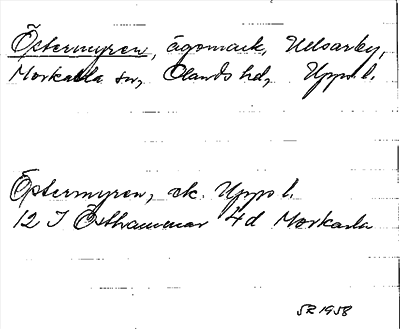 Östermyren, ägomark, Udsarby,
Morkarla sn, Olands hd, Upps. l.
Östermyren, ek. Upps l.
12 I Östhammar 4d Morkarla
SR 1958